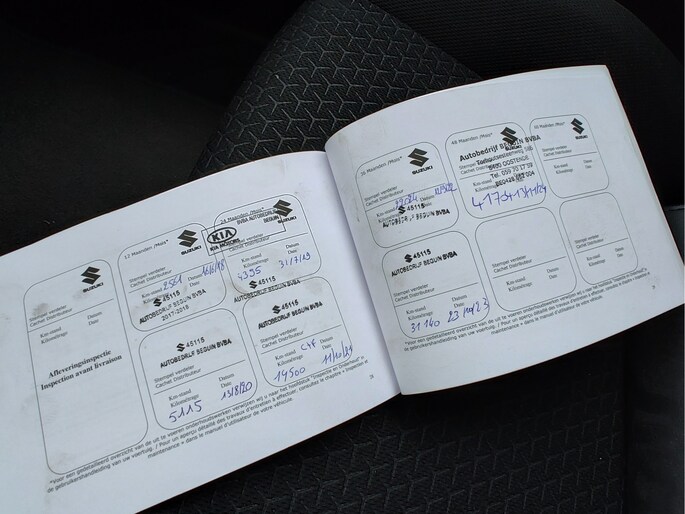 SUZUKI
Stempel verdeler
Cachet Distributeur
Km-stand
Kilométrage
Datum
Date
Afleveringsinspectie
Inspection avant livraison
12 Maanden /Mois*
SUZUKI
Stempel verdeler
Cachet Distributeur
Km-stand
Kilométrage
Datum
Date
2551
45115
AUTOBEDRIJF BEGUIN BVBA
2017-2018
24 Maanden /Mois*
SUZUKI
BVBA AUTOBEDRIJF
BEGUIN
KIA
KIA MOTORS
Km-stand
Kilométrage
Datum
Date
4335
31/7/19
45115
AUTOBEDRIJF BEGUIN BVBA
45115
AUTOBEDRIJF BEGUIN BVBA
Stempel verdeler
Cachet Distributeur
Km-stand
Kilométrage
Datum
Date
5115
13/8/20
Stempel verdeler
Cachet Distributeur
Km-stand
Kilométrage
Datum
Date
14500
11/10/21
*Voor een gedetailleerd overzicht van de uit te voeren onderhoudswerken verwijzen wij u naar het hoofdstuk "Inspectie en Onderhoud" in
de gebruikershandleiding van uw voertuig. / Pour un aperçu détaillé des travaux d'entretien à effectuer, consultez le chapitre « Inspection et
maintenance » dans le manuel d'utilisateur de votre véhicule.
36 Maanden /Mois*
SUZUKI
Stempel verdeler
Cachet Distributeur
Km-stand
Kilométrage
Datum
Date
45115
AUTOBEDRIJF BEGUIN BVBA
48 Maanden /Mois*
SUZUKI
Autobedrijf BEGUIN BVBA
OOSTENDE
Tel. 059 70 17 59
Stempel verdeler
Cachet Distributeur
41734
13/11/24
SUZUKI
Stempel verdeler
Cachet Distributeur
Km-stand
Kilométrage
Datum
Date
45115
AUTOBEDRIJF BEGUIN BVBA
Km-stand
Kilométrage
Datum
Date
31140
23
Stempel verdeler
Cachet Distributeur
Km-stand
Kilométrage
Datum
Date
Stempel verdeler
Cachet Distributeur
Km-stand
Kilométrage
Datum
Date
*Voor een gedetailleerd overzicht van de uit te voeren onderhoudswerken verwijzen wij u naar het hoofdstuk "Inspectie en Onderhoud" in
de gebruikershandleiding van uw voertuig. / Pour un aperçu détaillé des travaux d'entretien à effectuer, consultez le chapitre « Inspection et
maintenance » dans le manuel d'utilisateur de votre véhicule.